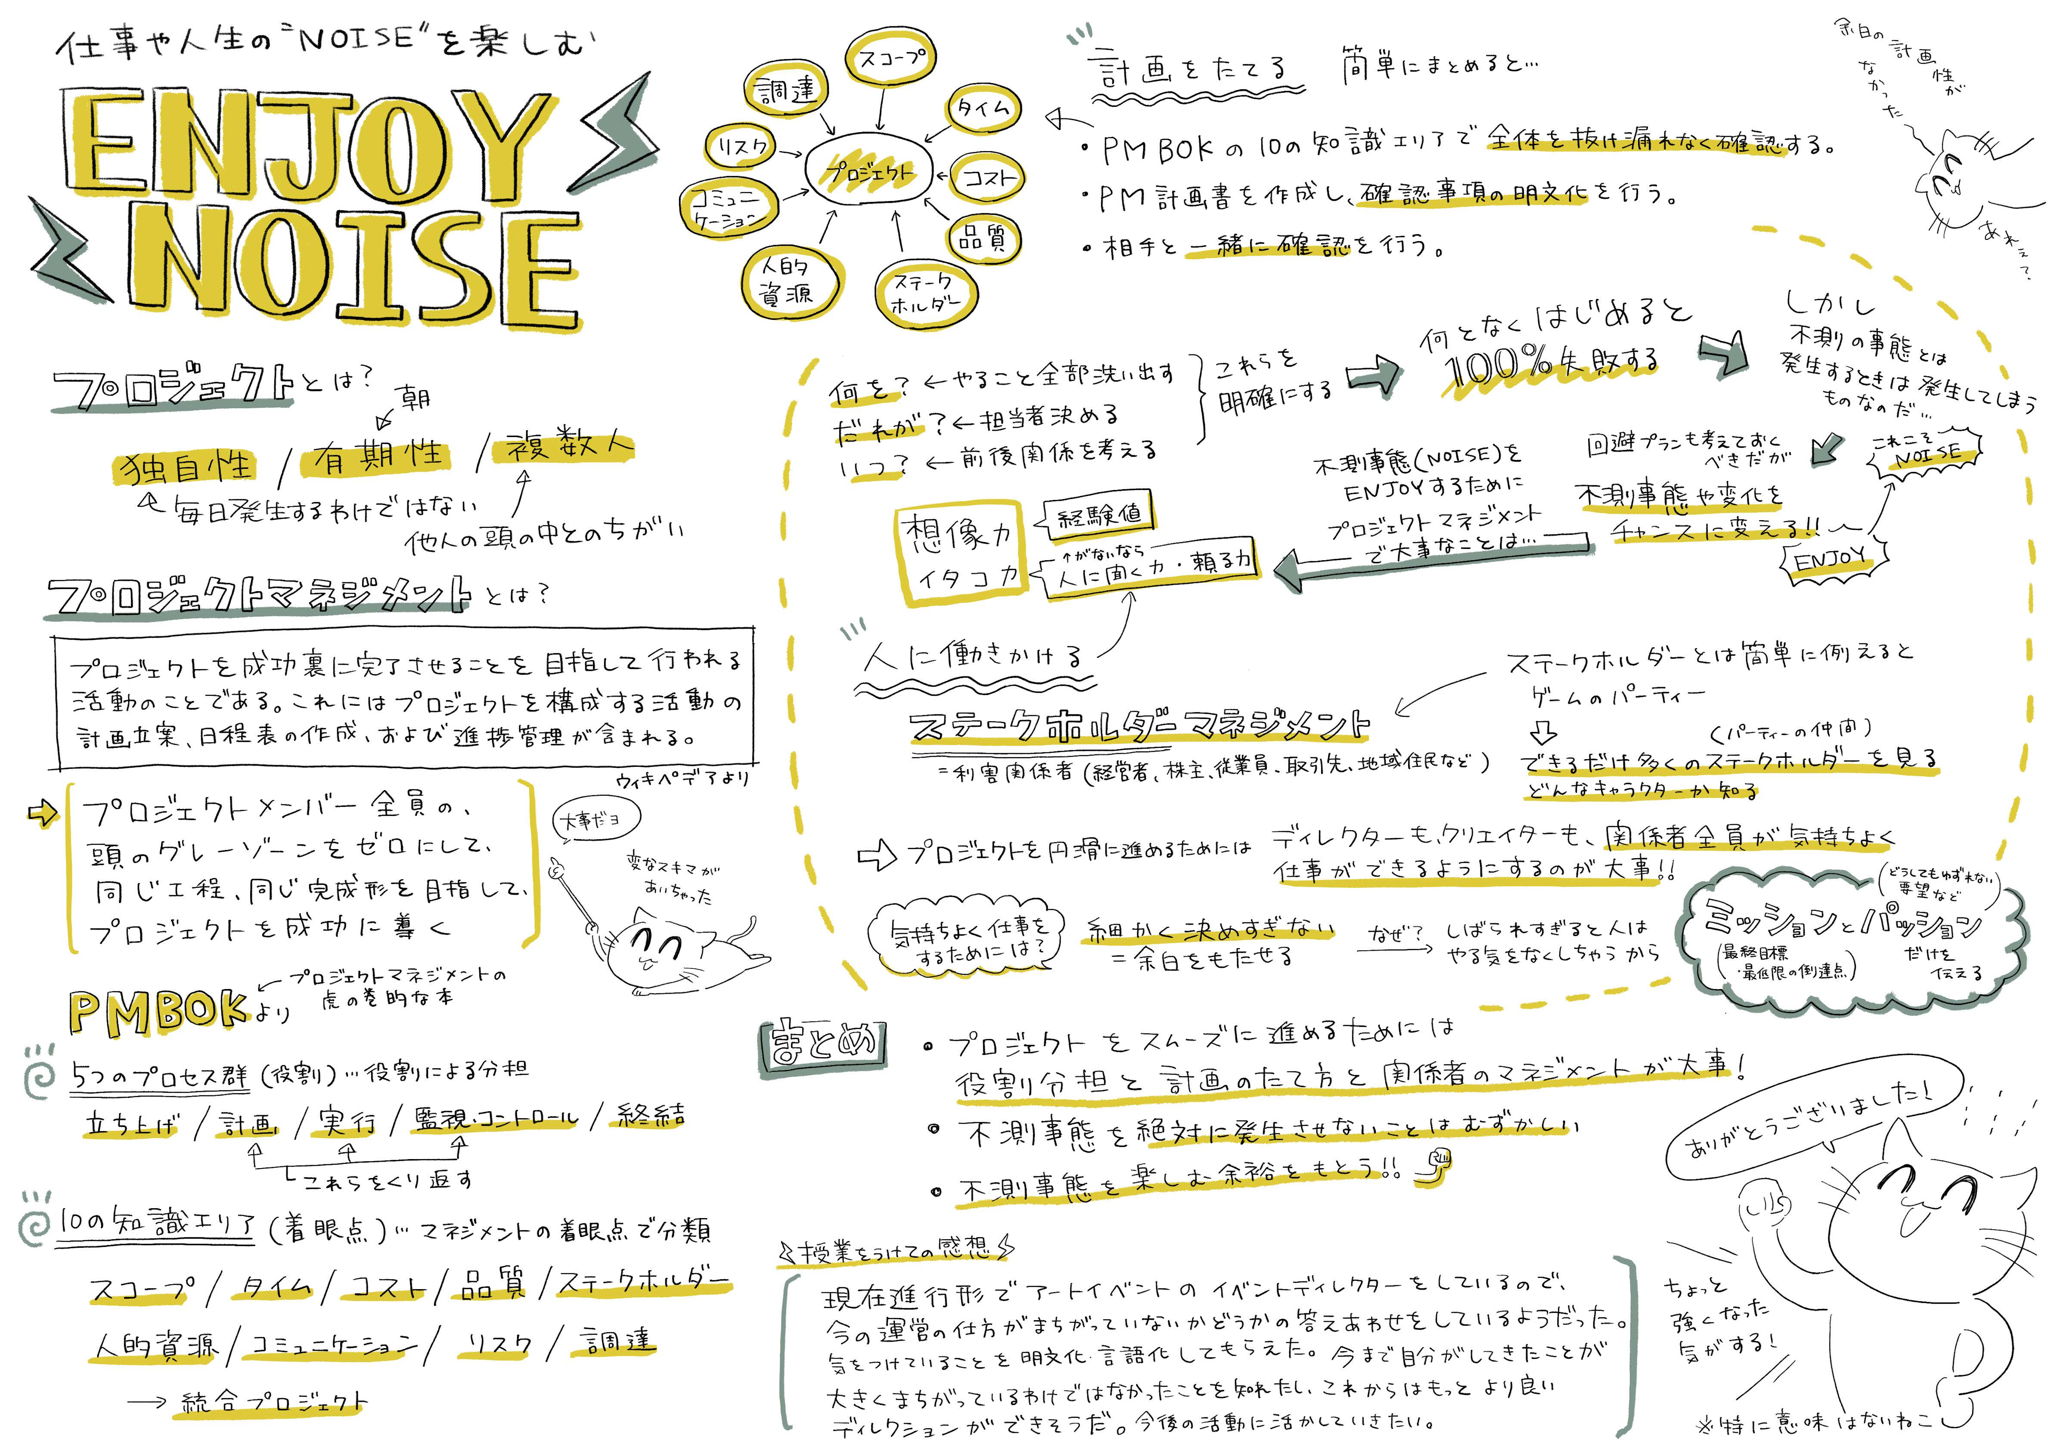 仕事や人生の"NOISE"を楽しむ
ENJOY
NOISE
プロジェクトとは?
朝
独自性 / 有期性 / 複数人
毎日発生するわけではない
他人の頭の中とのちがい
プロジェクトマネジメントとは?
プロジェクトを成功裏に完了させることを目指して行われる
活動のことである。これにはプロジェクトを構成する活動の
計画立案、日程表の作成、および進捗管理が含まれる。
ウィキペデアより
プロジェクトメンバー全員の、
頭のグレーゾーンをゼロにして、
同じ工程、同じ完成形を目指して、
プロジェクトを成功に導く
大事だヨ
変なスキマが
あいちゃった
PMBOKより
←プロジェクトマネジメントの
虎の巻的な本
5つのプロセス群(役割)…役割による分担
立ち上げ / 計画 / 実行 / 監視・コントロール / 終結
これらをくり返す
10の知識エリア(着眼点)…マネジメントの着眼点で分類
スコープ / タイム / コスト / 品質 / ステークホルダー
人的資源 / コミュニケーション / リスク / 調達
→ 統合プロジェクト
スコープ
調達
タイム
リスク
プロジェクト
コスト
コミュニ
ケーション
品質
人的
資源
ステーク
ホルダー
計画をたてる 簡単にまとめると…
・PMBOKの10の知識エリアで全体を抜け漏れなく確認する。
・PM計画書を作成し、確認事項の明文化を行う。
・相手と一緒に確認を行う。
余白の計画性が
なかった
あれぇ?
何を?←やること全部洗い出す
だれが?←担当者決める
いつ?←前後関係を考える
これらを
明確にする
何となくはじめると
100%失敗する
しかし
不測の事態とは
発生するときは発生してしまう
ものなのだ…
これこそ
NOISE
回避プランも考えておく
べきだが
不測事態や変化を
チャンスに変える!!
ENJOY
不測事態(NOISE)を
ENJOYするために
プロジェクトマネジメント
で大事なことは…
想像力
イタコ力
経験値
↑がないなら
人に聞く力・頼る力
人に働きかける
ステークホルダーマネジメント
=利害関係者(経営者、株主、従業員、取引先、地域住民など)
ステークホルダーとは簡単に例えると
ゲームのパーティー
(パーティーの仲間)
できるだけ多くのステークホルダーを見る
どんなキャラクターか知る
プロジェクトを円滑に進めるためには
ディレクターも、クリエイターも、関係者全員が気持ちよく
仕事ができるようにするのが大事!!
気持ちよく仕事を
するためには?
細かく決めすぎない
=余白をもたせる
なぜ?
しばられすぎると人は
やる気をなくしちゃうから
(どうしてもゆずれない
要望など)
ミッションとパッション
(最終目標
・最低限の到達点)
だけを
伝える
まとめ
・プロジェクトをスムーズに進めるためには
役割分担と計画のたて方と関係者のマネジメントが大事!
・不測事態を絶対に発生させないことはむずかしい
・不測事態を楽しむ余裕をもとう!!
授業をうけての感想
現在進行形でアートイベントのイベントディレクターをしているので、
今の運営の仕方がまちがっていないかどうかの答えあわせをしているようだった。
気をつけていることを明文化・言語化してもらえた。今まで自分がしてきたことが
大きくまちがっているわけではなかったことを知れたし、これからはもっとより良い
ディレクションができそうだ。今後の活動に活かしていきたい。
ありがとうございました!
ちょっと
強くなった
気がする!
※特に意味はないねこ